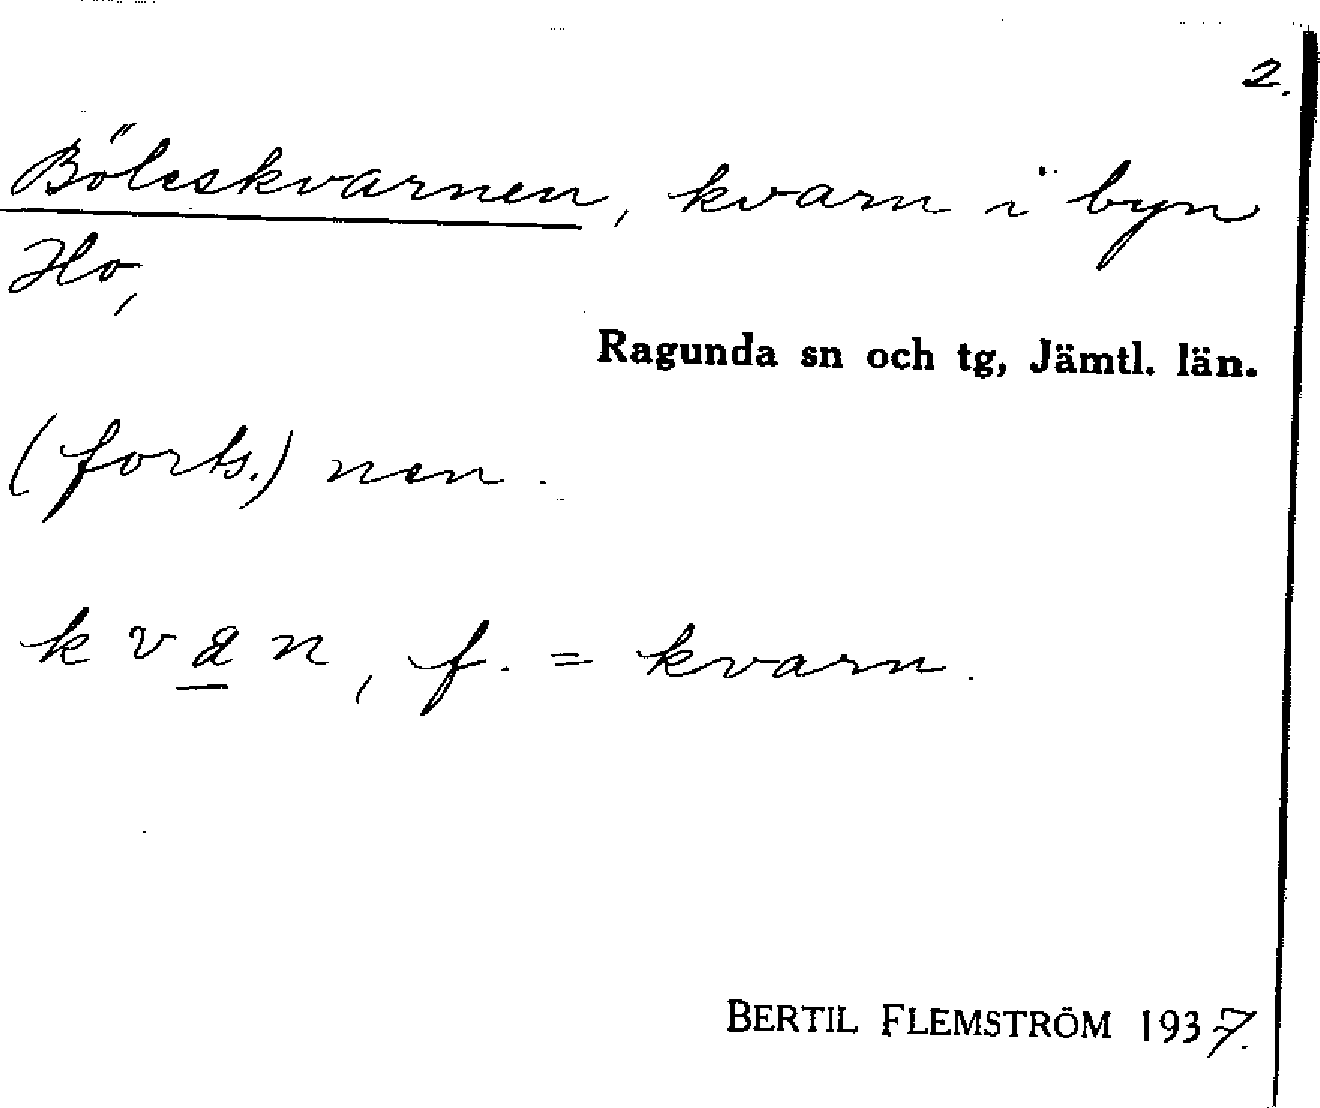 2.
Böleskvarnen, kvarn i byn
Ho,
Ragunda sn och tg, Jämtl. län.
(forts.) nen.
k v a n, f. = kvarn.
BERTIL FLEMSTRÖM 1937.